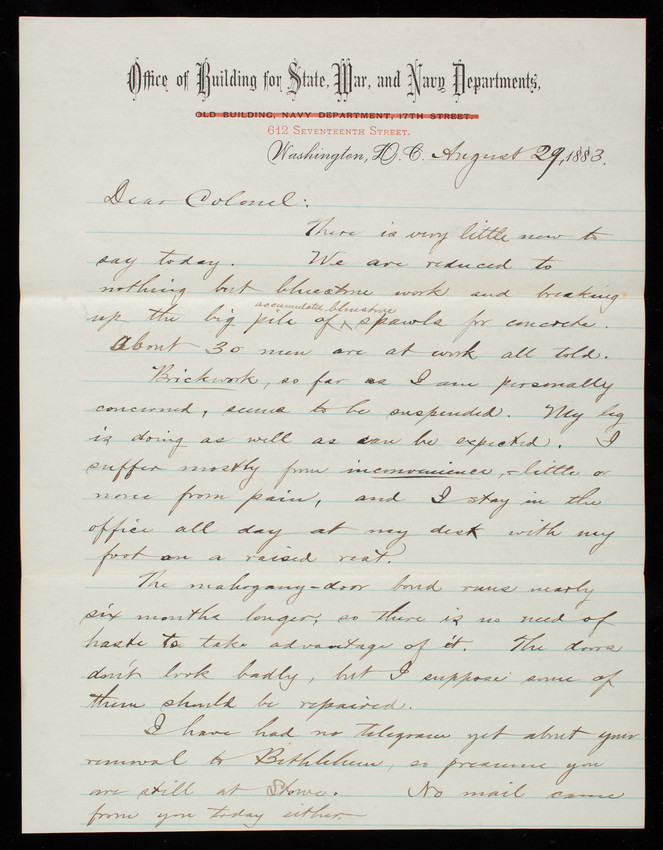 Office of Building for State, War, and Navy Departments,
OLD BUILDING, NAVY DEPARTMENT, 17TH STREET.
612 SEVENTEENTH STREET.
Washington, D.C. August 29, 1883.
Dear Colonel:
There is very little new to
say today. We are reduced to
nothing but bluestone work and breaking
accumulated bluestone
up the big pile of ^ spawls for concrete.
About 30 men are at work all told.
Brickwork, so far as I am personally
concerned, seems to be suspended. My leg
is doing as well as can be expected. I
suffer mostly from inconvenience, - little or
none from pain, and I stay in the
office all day at my desk with my
foot on a raised rest.
The mahogany-door bond runs nearly
six months longer, so there is no need of
haste to take advantage of it. The doors
don't look badly, but I suppose some of
them should be repaired.
I have had no telegram yet about your
removal to Bethlehem, so presume you
are still at Stowe. No mail came
from you today either.